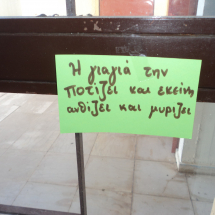 Η γιαγιά την
ποτίζει και εκείνη
ανθίζει και μυρίζει